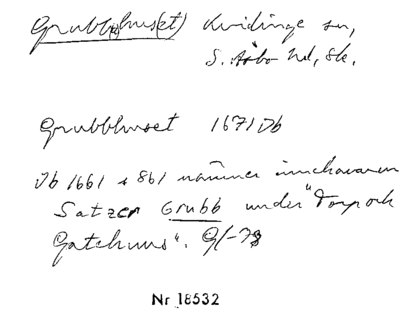 Grubb(huset) Kvidinge sn,
S. Åsbo hd, Sk.
Grubbhuset 1671 Jb
Jb 1661 s 861 nämner innehavaren
Satzer Grubb under "Torp och
Gatehuus". Gl-73
Nr 18532